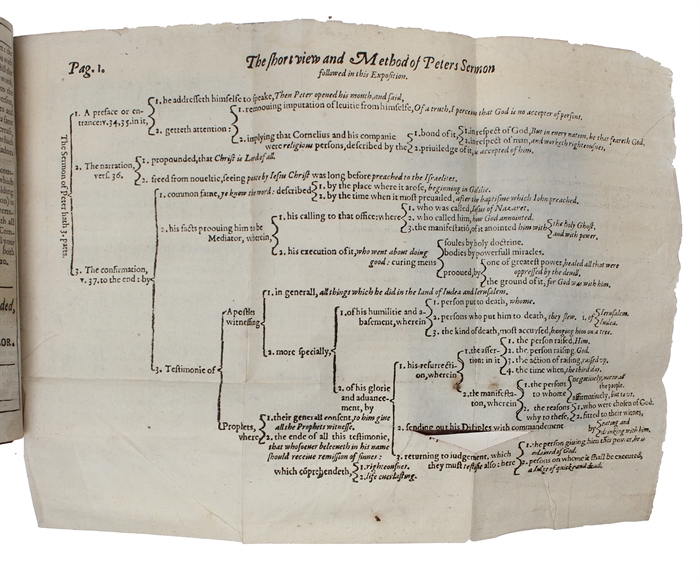 Pag. 1.
The short view and Method of Peters Sermon
followed in this Exposition.
The Sermon of Peter hath 3. parts.
1. A preface or en-
trance: v. 34,35. in it,
1. he addresseth himselfe to speake, Then Peter opened his mouth, and said,
2. getteth attention:
1. remouing imputation of leuitie from himselfe, Of a truth, I perceiu that God is no accepter of persons.
2. implying that Cornelius and his companie
were religious persons, described by the
1. bond of it,
1. in respect of God, But in euery nation, he that feareth God,
2. in respect of man, and worketh righteousnes,
2. priuiledge of it, is accepted of him.
2. The narration,
vers. 36.
1. propounded, that Christ is Lord of all.
2. freed from noueltie, seeing peace by Iesus Christ was long before preached to the Israelites.
3. The confirmation,
v. 37. to the end: by
1. common fame, ye know the word: described
1. by the place where it arose, beginning in Galilie.
2. by the time when it most preuailed, after the baptisme which Iohn preached.
2. his facts proouing him to be
Mediator, wherein,
1. his calling to that office: where
1. who was called, Iesus of Nazaret.
2. who called him, how God annointed.
3. the manifestatiō, of it, anointed him with
the holy Ghost,
and with power.
2. his execution of it, who went about doing
good: curing mens
soules by holy doctrine.
bodies by powerfull miracles.
prooued, by
one of greatest power, healed all that were
oppressed by the deuill.
the ground of it, for God was with him.
3. Testimonie of
Apostles
witnessing
1. in generall, all things which he did in the land of Iudea and Ierusalem.
2. more specially,
1. of his humilitie and a-
basement, wherein
1. person put to death, whome.
2. persons who put him to death, they slew. i. of
Ierusalem.
Iudea.
3. the kind of death, most accursed, hanging him on a tree.
2. of his glorie
and aduance-
ment, by
1. his resurrecti-
on, wherein
1. the asser-
tion: in it
1. the person raised, Him.
2. the person raising, God.
3. the action of raising, raised up,
4. the time when, the third day.
2. the manifesta-
ton, wherein
1. the persons
to whome
negatiuely, not to all
the people.
affirmatiuely, but to vs.
2. the reasons
why to these.
1. who were chosen of God.
2. fitted to their witnes,
by
eating and
drinking with him.
2. sending out his Disciples with commandement
3. returning to iudgement, which
they must testifie also: here
1. the person giuing him this power, he is
ordained of God.
2. persons on whome it shall be executed,
a Iudge of quicke and dead.
Prophets,
where
1. their generall consent, to him giue
all the Prophets witnesse.
2. the ende of all this testimonie,
that whosoeuer beleeueth in his name
should receiue remission of sinnes:
which cōprehendeth,
1. righteousnes.
2. life euerlasting.